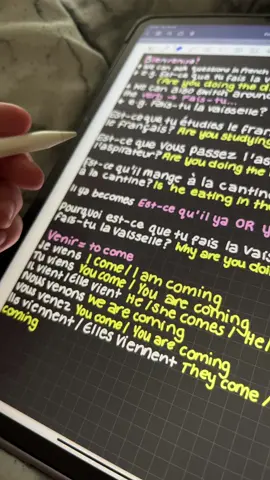 Bienvenue!
• We can ask questions in French
• e.g. Est-ce que tu fais la
(Are you doing the
• We can also switch around
the verb → Fais-tu...
• e.g. Fais-tu la vaisselle?
Est-ce que tu étudies le
le français? Are you studying
Est-ce que vous passez
l'aspirateur? Are you doing the
Est-ce qu'il mange à la
à la cantine? Is he eating in the
Il ya becomes Est-ce qu'il ya OR
Pourquoi est-ce que tu fais la
fais-tu la vaisselle? Why are you
Venir = to come
Je viens I come / I am coming
Tu viens You come / You are coming
Il vient / Elle vient He / She comes /
Nous venons We are coming
Vous venez You come / You are coming
Ils viennent / Elles viennent They come /
coming